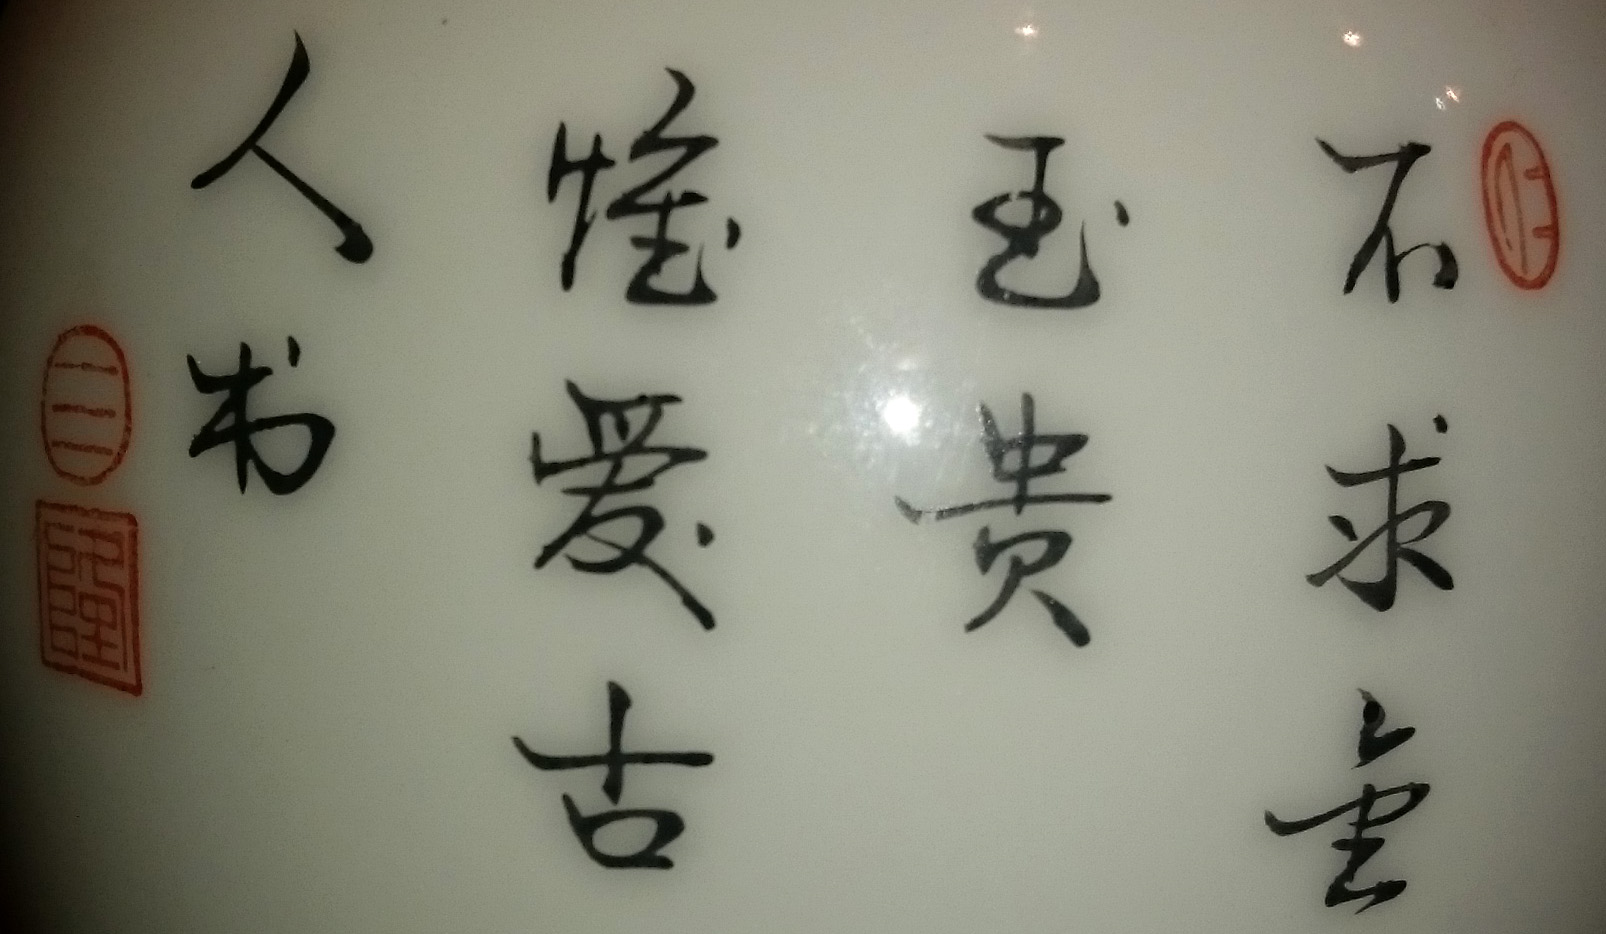 不求金
玉贵
惟爱古
人书